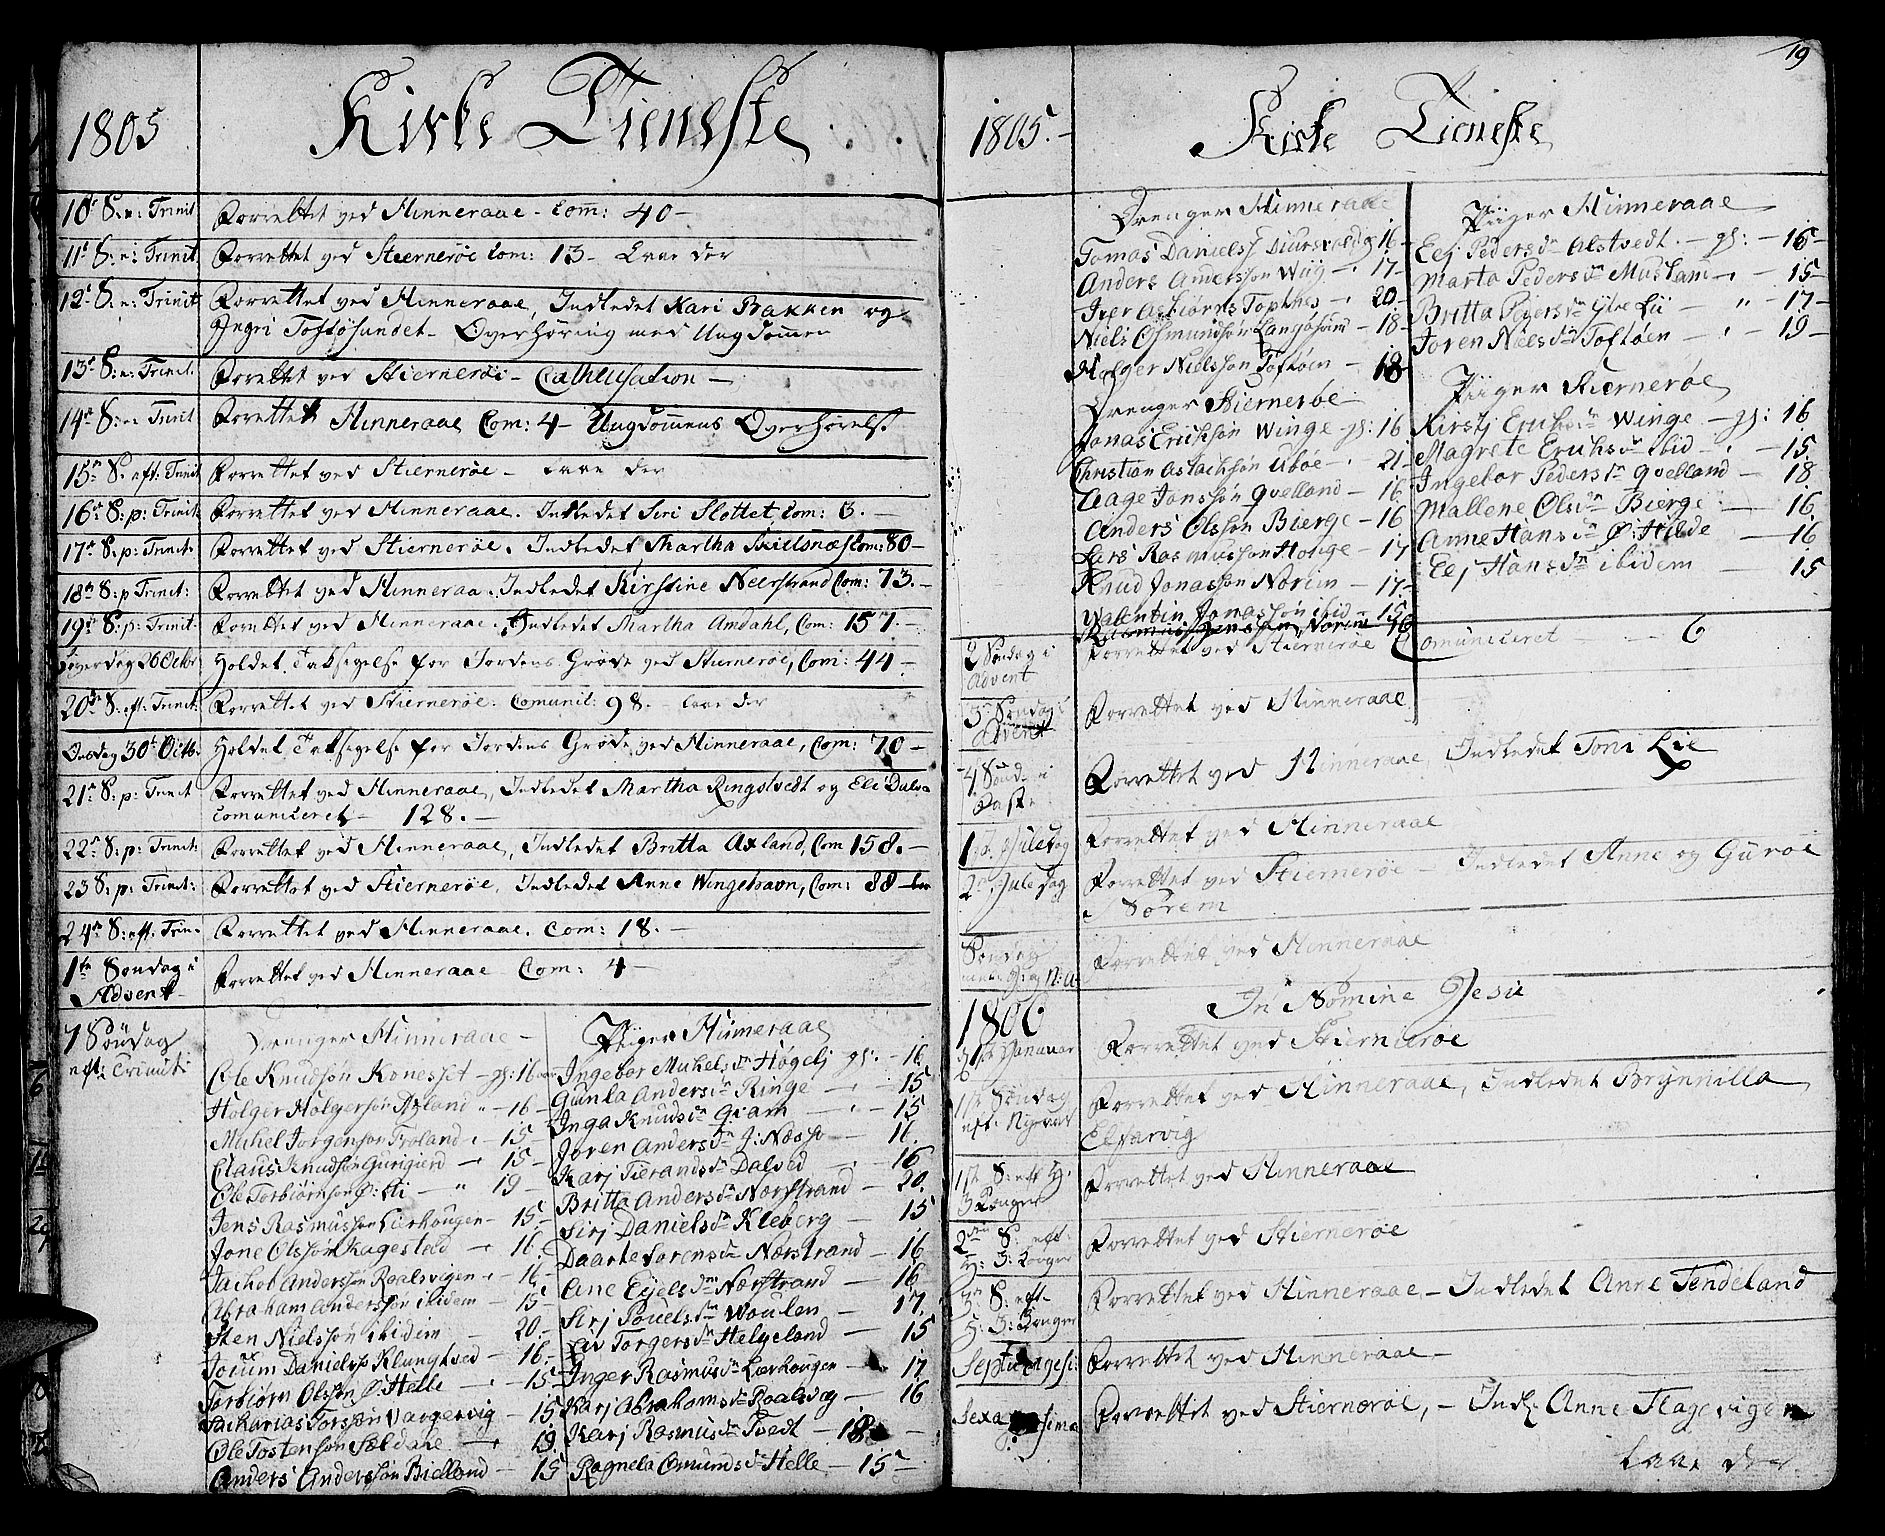 1805 Kirke Tieneste
10de S: e: Trinit Forrettet ved Hinneraae - Com: 40 -
11te S: e: Trinit Forrettet ved Stiernerøe Com: 13 - Laae der
12te S: e: Trinit Forrettet ved Hinneraae, Indledet Kari Bakken og
Ingri Toftøsundet - Overhøring med Ungdommen
13de S: e: Trinit. Forrettet ved Stiernerøe - Cathechisation -
14de S: e: Trinit Forrettet Hinneraae Com: 4 - Ungdommens Overhørelse
15de S: eft: Trinit Forrettet ved Stiernerøe - Laae der
16de S: p: Trinit. Forrettet ved Hinneraae. Indledet Siri Slottet, Com: 3. -
17de S: p: Trinit: Forrettet ved Stiernerøe. Indledet Martha Skielsnæs Com: 80 -
18de S: p Trinit: Forrettet ved Hinneraae. Indledet Kirstine Neerstrand Com: 73. -
19de S: p: Trinit: Forrettet ved Hinneraae. Indledet Martha Amdahl, Com: 157. -
Løverdag 26 Octbr: Holdet Taksigelse for Jordens Grøde ved Stiernerøe, Com: 44 -
20de S: eft: Trinit: Forrettet ved Stiernerøe. Comunic: 98. - Laae der
Onsdag 30te Octb: Holdet Taksigelse for Jordens Grøde ved Hinneraae, Com: 70 -
21de S: p: Trinit Forrettet ved Hinneraae, Indledet Martha Ringstvedt og Eli Dalva
Comuniceret - 128. -
22de S: p: Trinit: Forrettet ved Hinneraae, Indledet Britta Axland, Com 158. -
23 S: p: Trinit: Forrettet ved Stiernerøe, Indledet Anne Wingehavn, Com: 88 -
24de S: eft: Trin: Forrettet ved Hinneraae. Com: 18. -
1te Søndag i Forrettet ved Hinneraae Com: 4 -
Advent -
7 Søndag
eft: Trinit:
Drenger Hinneraae -
Ole Knudsøn Konesset - gl: 16
Holger Holgersøn Axland " - 16 -
Mickel Jorgensøn Froland - 15 -
Claus Knudsøn Gurigierd - 15 -
Ole Torbiørnsøn Ø: Li - " 19 -
Jens Rasmussøn Lierhougen - 15 -
Jone Olssøn Ragestad - 16 -
Jachob Anderssøn Roalsvigen - 16 -
Abraham Anderssøn ibidem - 15 -
Sten Nielssøn ibidem 20 -
Jocum Danielssø Klungtved - 16 -
Torbiørn Olssøn Ø: Helle - 15 -
Zacharias Torssøn Vargervig - 15
Ole Tostensøn Sældale - 19.
Anders Anderssøn Bielland - 15
Piiger Hinneraae
Ingebor Mickelsdn Høgelj gl: - 16
Gunla Andersdn Ringe - 15
Inga Knudsdn Giam - 15
Joren Andersdn J: Næssø - 16
Karj Tierandsdn Dalved - 16
Britta Andersdn Nærstrand - 20.
Sirj Danielsdn Kleberg - 15
Daarte Sorensdn Nærstrand - 16
Ane Ejelsdn Nærstrand - 16
Sirj Pouelsdn Woulen - 17.
Liv Torgersdn Helgeland - 15
Inger Rasmusdn Lærhougen - 17
Karj Abrahamsdn Roalsvag - 16
Karj Rasmusdn Tvedt - 18
Ragnela Omundsdn Helle - 15 -
19
1805. - Kirke Tieneste
Drenger Hinneraae
Tomas Danielss Diursvold gl 16 -
Anders Anderssøn Wiig - 17 -
Iver Asbiørns Tophes - 20 -
Niels Osmundsøn Langøsund - 18 -
Holger Nielssøn Toftøen - 18
Drenger Stiernerøe
Jonas Erichsøn Winge gl: 16
Christian Aslachsøn Aböe - 21 -
Aage Jonssøn Qvelland - 16.
Anders Olssøn Bierge - 16
Lars Rasmussøn Houge - 17
Knud Jonassøn Norem - 17 -
Walentin Jonassøn ibid - 15 -
Piiger Hinneraae
Eej Pedersdn Alstvedt. - gl: - 16 -
Marta Pedersdn Musland - 15
Britta Pedersdn Ytre Lii - " - 17 -
Joren Nielsdn Toftøen - 19 -
Piiger Stiernerøe
Kirstj Erichsdn Winge - gl: 16
Magrete Erichsdn ibid - 15.
Ingebor Pedersdn Qvelland - 18
Mallene Olsdn Bierge - 16
Anne Hansdn Ø: Hilde - 16
Eej Hansdn ibidem - 15
2 Søndag i Forrettet ved Stiernerøe Comuniceret - 6
Advent
3de Søndag i Forrettet ved Hinneraae
Advent
4 Sønd: i Forrettet ved Hinneraae, Indledet Toni Lie
1ste Juledag Forrettet ved Hinneraae
2de Juledag Forrettet ved Stiernerøe - Indledet Anne og Guroe
Norem
Søndag Forrettet ved Hinneraae
1806 In Nomine Jesu
1ste Januar Forrettet ved Stiernerøe
1ste Søndag Forrettet ved Hinneraae, Indledet Brynnilla
eft: Nyeaar Elfarvig
1ste S: eft H. Forrettet ved Hinneraae
3 Konger
2den S: eft: Forrettet ved Stiernerøe
H: 3: Konger
3de S: eft- Forrettet ved Hinneraae - Indledet Anne Tendeland
H: 3: Konger
Septuagesi: Forrettet ved Hinneraae -
Sexagesima Forrettet ved Stiernerøe, - Indl: Anne Hagevigen
Laae der